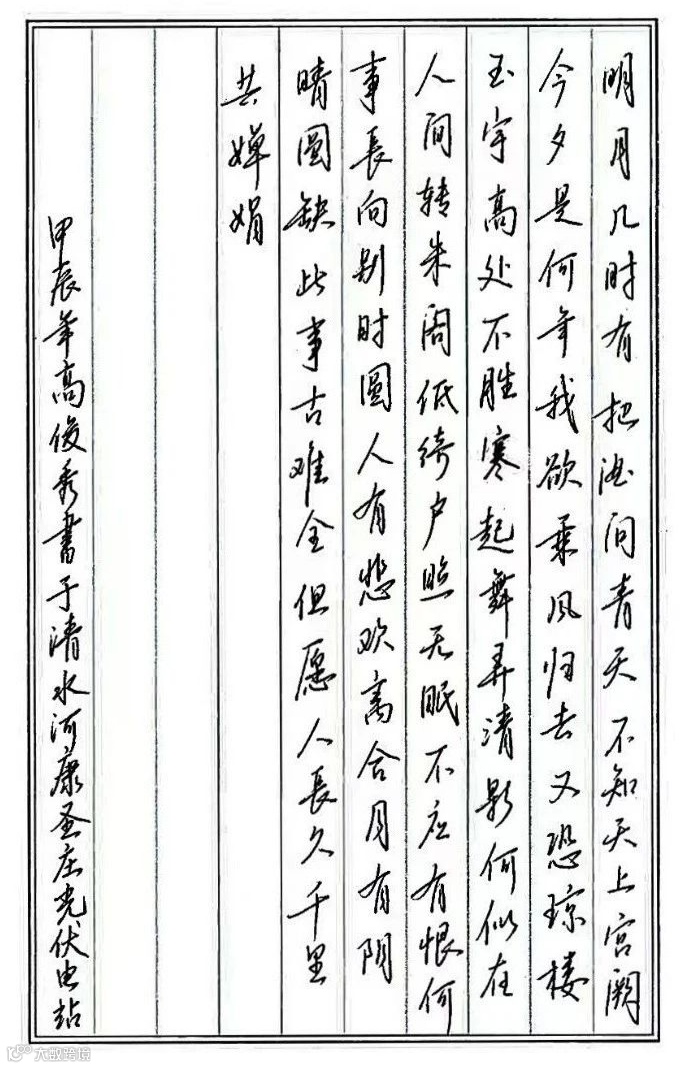 明月几时有把酒问青天不知天上宫阙
今夕是何年我欲乘风归去又恐琼楼
玉宇高处不胜寒起舞弄清影何似在
人间转朱阁低绮户照无眠不应有恨何
事長向别时圆人有悲欢离合月有阴
晴圆缺此事古难全但愿人長久千里
共婵娟
甲辰年高俊秀书于清水河康圣庄光伏电站
大数跨境